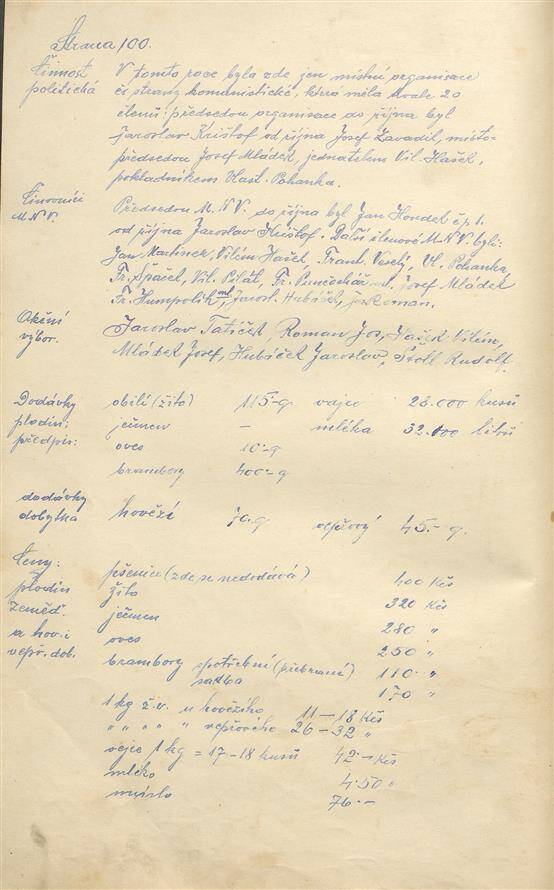 Strana 100.
Činnost politická
V tomto roce byla zde jen místní organisace
čs strany komunistické, která měla kvale 20
členů: předsedou organisace do října byl
Jaroslav Krištof od října Josef Zavadil, místo-
předsedou Josef Mládek, jednatelem Vil. Hašek,
pokladníkem Vlast. Pohanka.
Činovníci M.N.V.
Předsedou M.N.V. do října byl Jan Houdek čp. 1.
od října Jaroslav Krištof. Další členové M.N.V. byli:
Jan Martinek, Vilém Hašek, Frant. Veselý, Vl. Pohanka,
Fr. Špaček, Vil. Pilát, Fr. Punčochář ml. Josef Mládek
Fr. Humpolík ml, Jarosl. Hubáček, Jos Roman.
Akční výbor.
Jaroslav Tatíček, Roman Jos, Hašek Vilém,
Mládek Josef, Hubáček Jaroslav, Štoll Rudolf.
Dodávky plodin: předpis:
obilí (žito) 115.-q vajec 28.000 kusů
ječmen – mléka 32.000 litrů
oves 10.-q
brambory 400.-q
dodávky dobytka
hovězí 70.q vepřový 45.- q.
Ceny: plodin zeměď. a hov. i vepř. dob.
pšenice (zde se nedodává) 400 Kčs
žito 320 Kčs
ječmen 280 "
oves 250 "
brambory spotřební (přebrané) 110 "
sadba 170 "
1 kg ž.v. u hovězího 11–18 Kčs
" " " " " vepřového 26–32 "
vejce 1 kg = 17-18 kusů 42.– Kčs
mléko 4.50 "
máslo 76.–